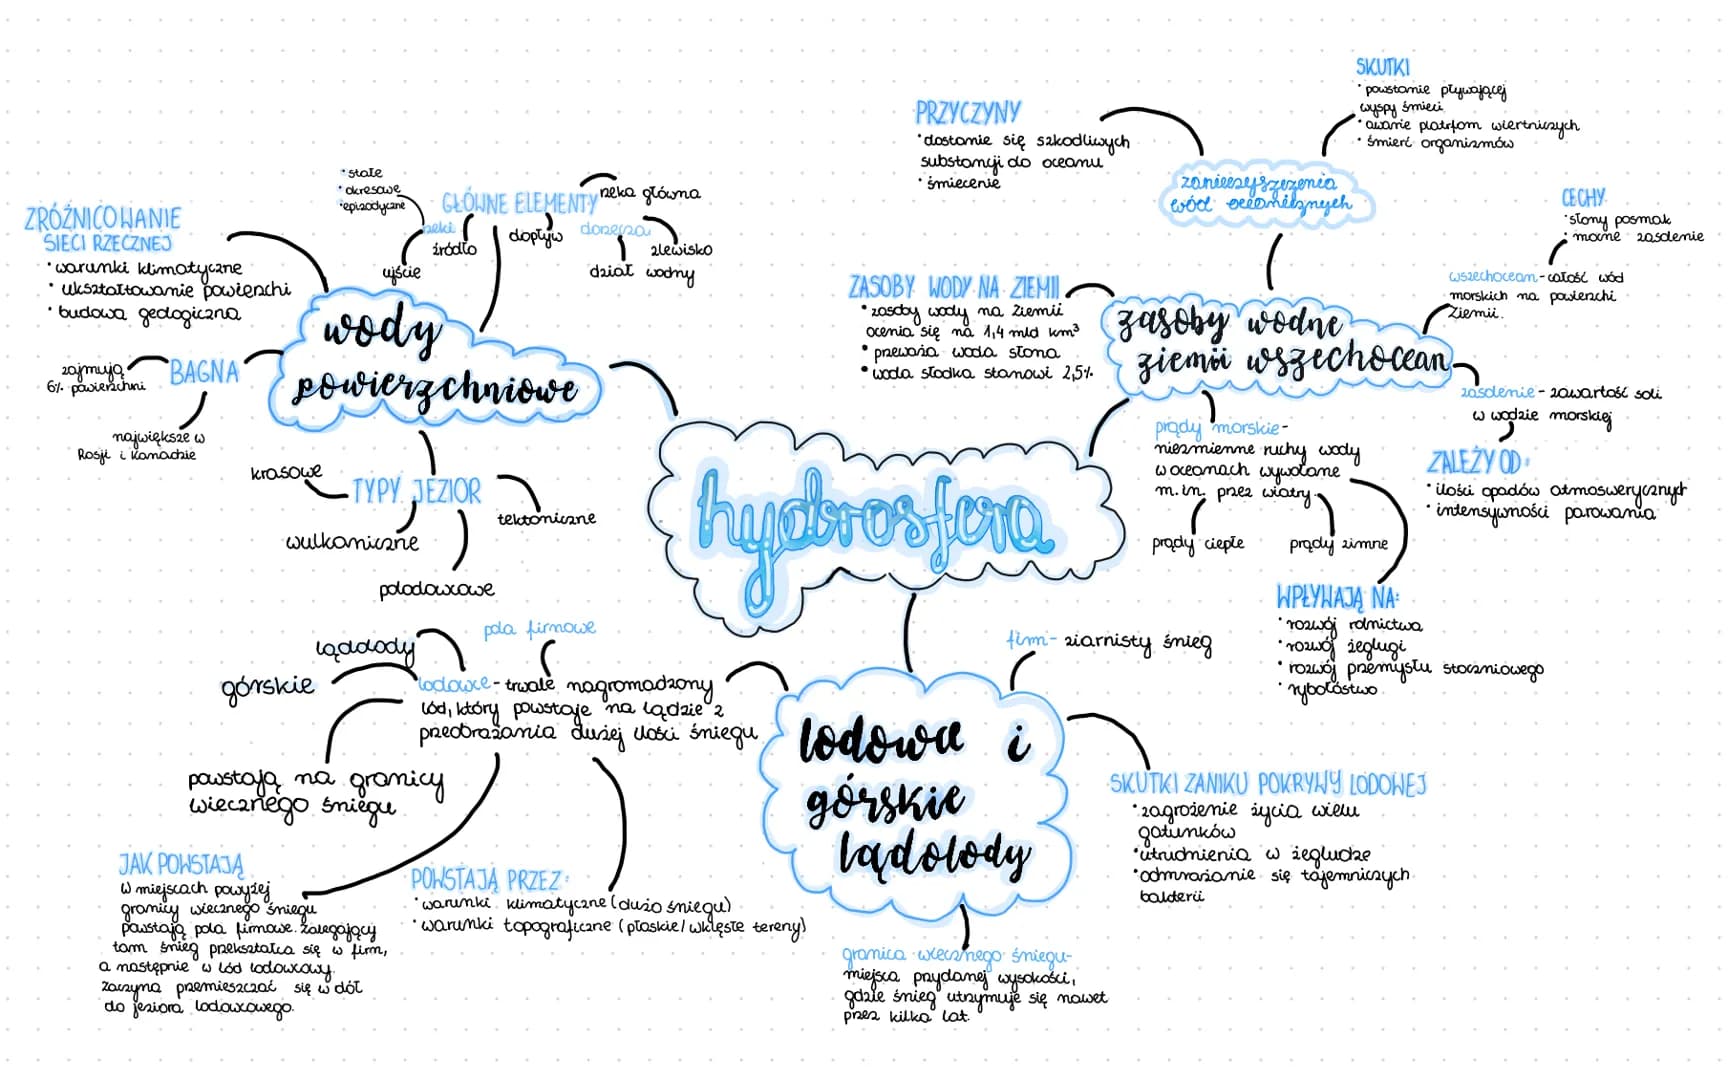 hydrosfera
wody
powierzchniowe
ZRÓŻNICOWANIE
SIECI RZECZNEJ
• warunki klimatyczne
• ukształtowanie powierzchi
• budowa geologiczna
BAGNA
zajmują
6% powierzchni
największe w
Rosji i Kanadzie
GŁÓWNE ELEMENTY
rzeki
• stałe
• okresowe
• epizodyczne
ujście
źródło
dopływ
dorzecza
rzeka główna
zlewisko
dział wodny
TYPY JEZIOR
krasowe
wulkaniczne
polodowcowe
tektoniczne
zasoby wodne
ziemii wszechocean
ZASOBY WODY NA ZIEMII
• zasoby wody na ziemii
ocenia się na 1,4 mld km³
• przeważa woda słona
• woda słodka stanowi 2,5%
zanieczyszczenia
wód oceanicznych
PRZYCZYNY
• dostanie się szkodliwych
substancji do oceanu
• śmiecenie
SKUTKI
• powstanie pływającej
wyspy śmieci
• awarie platrfom wiertniczych
• śmierć organizmów
wszechocean - całość wód
morskich na powierzchi
ziemii.
CECHY
• słony posmak
• mocne zasolenie
zasolenie - zawartość soli
w wodzie morskiej
ZALEŻY OD:
• ilości opadów atmoswerycznych
• intensywności parowania
prądy morskie -
niezmienne ruchy wody
w oceanach wywołane
m.in. przez wiatry.
prądy ciepłe
prądy zimne
WPŁYWAJĄ NA:
• rozwój rolnictwa
• rozwój żeglugi
• rozwój przemysłu stoczniowego
• rybołóstwo
lodowce i
górskie
lądolody
firn - ziarnisty śnieg
SKUTKI ZANIKU POKRYWY LODOWEJ
• zagrożenie życia wielu
gatunków
• utrudnienia w żegludze
• odmrażanie się tajemniczych
bakterii
granica wiecznego śniegu -
miejsca przydanej wysokości,
gdzie śnieg utrzymuje się nawet
przez kilka lat.
lodowce - trwale nagromadzony
lód, który powstaje na lądzie z
przeobrażania dużej ilości śniegu
pola firnowe
lądolody
górskie
powstają na granicy
wiecznego śniegu
JAK POWSTAJĄ
W miejscach powyżej
granicy wiecznego śniegu
powstają pola firnowe. Zalegający
tam śnieg przekształca się w firn,
a następnie w lód lodowcowy.
zaczyna przemieszczać się w dół
do jeziora lodowcowego.
POWSTAJĄ PRZEZ:
• warunki klimatyczne (dużo śniegu)
• warunki topograficzne (płaskie/wklęsłe tereny)